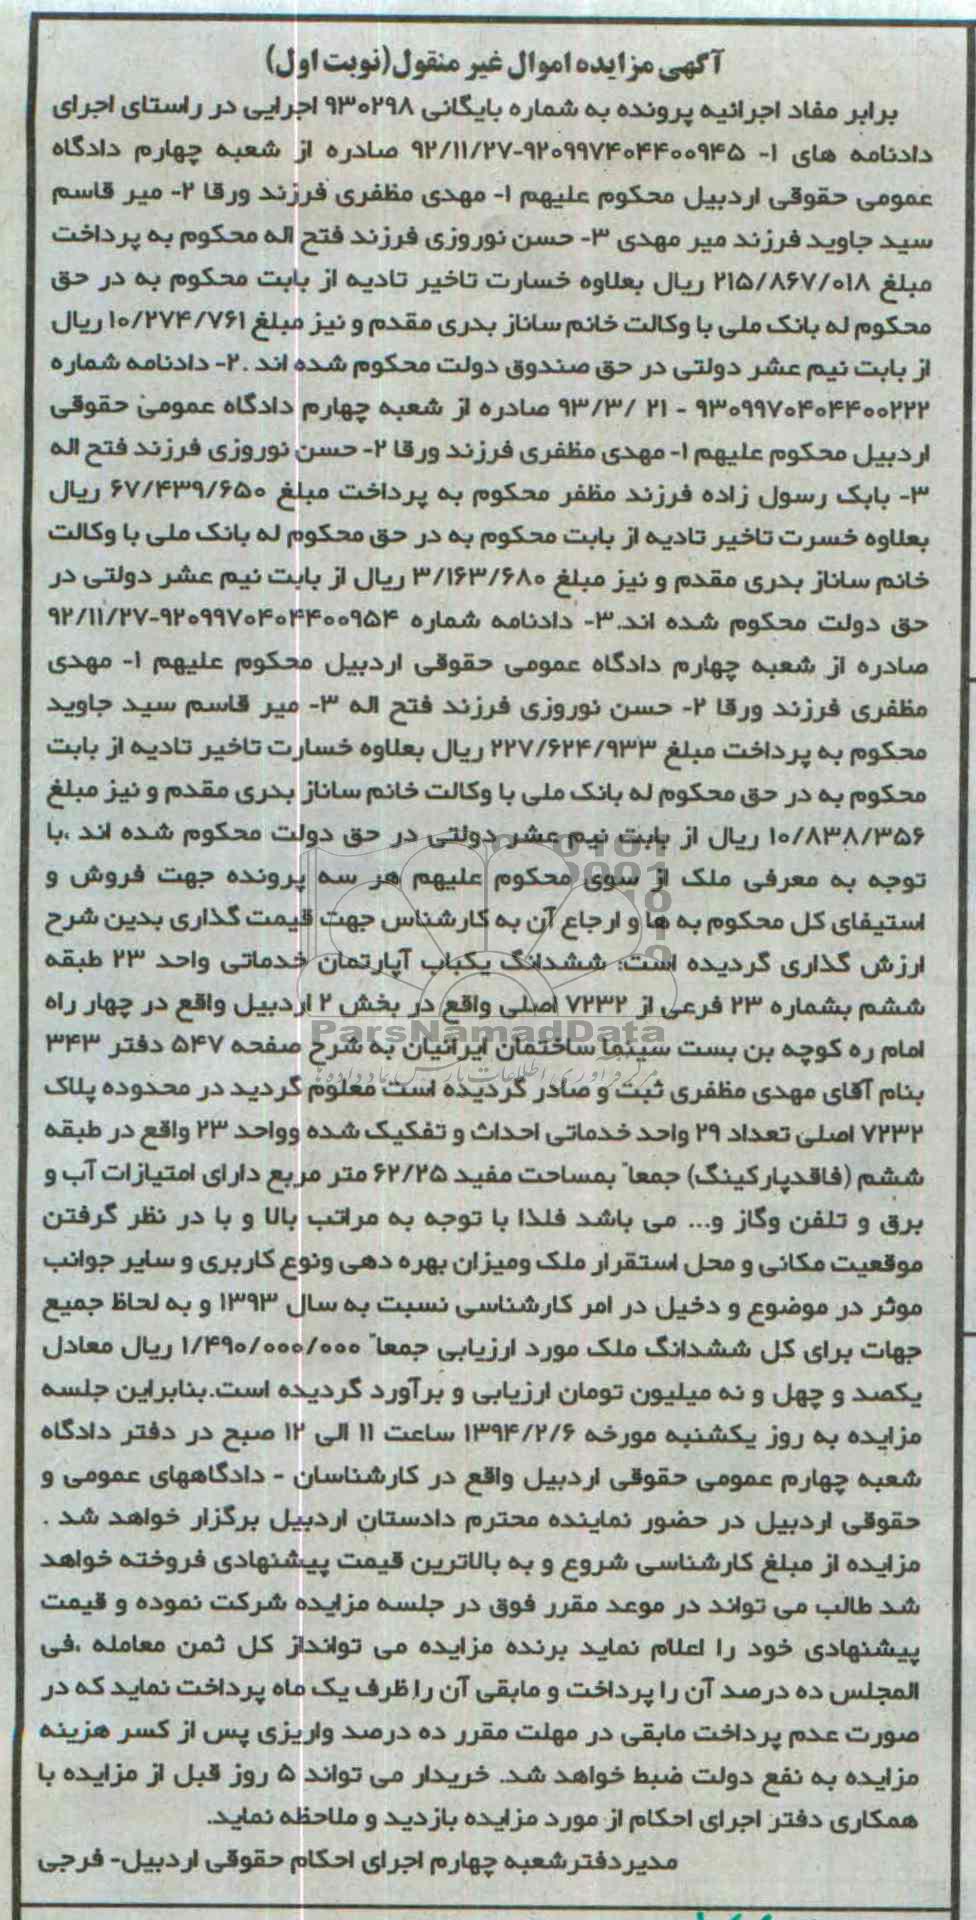 آگهی مزایده اموال غیر منقول(نوبت اول)
برابر مفاد اجرائیه پرونده به شماره بایگانی ۹۳۰۲۹۸ اجرایی در راستای اجرای
دادنامه های ۱- ۹۲۰۹۹۷۴۰۴۴۰۰۹۴۵-۹۲/۱۱/۲۷ صادره از شعبه چهارم دادگاه
عمومی حقوقی اردبیل محکوم علیهم ۱- مهدی مظفری فرزند ورقا ۲- میر قاسم
سید جاوید فرزند میر مهدی ۳- حسن نوروزی فرزند فتح اله محکوم به پرداخت
مبلغ ۲۱۵/۸۶۷/۰۱۸ ریال بعلاوه خسارت تاخیر تادیه از بابت محکوم به در حق
محکوم له بانک ملی با وکالت خانم ساناز بدری مقدم و نیز مبلغ ۱۰/۲۷۴/۷۶۱ ریال
از بابت نیم عشر دولتی در حق صندوق دولت محکوم شده اند .۲- دادنامه شماره
۹۳۰۹۹۷۰۴۰۴۴۰۰۲۲۲ - ۲۱ /۹۳/۳ صادره از شعبه چهارم دادگاه عمومی حقوقی
اردبیل محکوم علیهم ۱- مهدی مظفری فرزند ورقا ۲- حسن نوروزی فرزند فتح اله
۳- بابک رسول زاده فرزند مظفر محکوم به پرداخت مبلغ ۶۷/۴۳۹/۶۵۰ ریال
بعلاوه خسرت تاخیر تادیه از بابت محکوم به در حق محکوم له بانک ملی با وکالت
خانم ساناز بدری مقدم و نیز مبلغ ۳/۱۶۳/۶۸۰ ریال از بابت نیم عشر دولتی در
حق دولت محکوم شده اند.۳- دادنامه شماره ۹۲۰۹۹۷۰۴۰۴۴۰۰۹۵۴-۹۲/۱۱/۲۷
صادره از شعبه چهارم دادگاه عمومی حقوقی اردبیل محکوم علیهم ۱- مهدی
مظفری فرزند ورقا ۲- حسن نوروزی فرزند فتح اله ۳- میر قاسم سید جاوید
محکوم به پرداخت مبلغ ۲۲۷/۶۲۴/۹۳۳ ریال بعلاوه خسارت تاخیر تادیه از بابت
محکوم به در حق محکوم له بانک ملی با وکالت خانم ساناز بدری مقدم و نیز مبلغ
۱۰/۸۳۸/۳۵۶ ریال از بابت نیم عشر دولتی در حق دولت محکوم شده اند ،با
توجه به معرفی ملک از سوی محکوم علیهم هر سه پرونده جهت فروش و
استیفای کل محکوم به ها و ارجاع آن به کارشناس جهت قیمت گذاری بدین شرح
ارزش گذاری گردیده است: ششدانگ یکباب آپارتمان خدماتی واحد ۲۳ طبقه
ششم بشماره ۲۳ فرعی از ۷۲۳۲ اصلی واقع در بخش ۲ اردبیل واقع در چهار راه
ParsNamadData
امام ره کوچه بن بست سینما ساختمان ایرانیان به شرح صفحه ۵۴۷ دفتر ۳۴۳
بنام آقای مهدی مظفری ثبت و صادر گردیده است معلوم گردید در محدوده پلاک
۷۲۳۲ اصلی تعداد ۲۹ واحد خدماتی احداث و تفکیک شده وواحد ۲۳ واقع در طبقه
ششم (فاقدپارکینگ) جمعاً بمساحت مفید ۶۲/۲۵ متر مربع دارای امتیازات آب و
برق و تلفن وگاز و... می باشد فلذا با توجه به مراتب بالا و با در نظر گرفتن
موقعیت مکانی و محل استقرار ملک ومیزان بهره دهی ونوع کاربری و سایر جوانب
موثر در موضوع و دخیل در امر کارشناسی نسبت به سال ۱۳۹۳ و به لحاظ جمیع
جهات برای کل ششدانگ ملک مورد ارزیابی جمعاً ۱/۴۹۰/۰۰۰/۰۰۰ ریال معادل
یکصد و چهل و نه میلیون تومان ارزیابی و برآورد گردیده است.بنابراین جلسه
مزایده به روز یکشنبه مورخه ۱۳۹۴/۲/۶ ساعت ۱۱ الی ۱۲ صبح در دفتر دادگاه
شعبه چهارم عمومی حقوقی اردبیل واقع در کارشناسان - دادگاههای عمومی و
حقوقی اردبیل در حضور نماینده محترم دادستان اردبیل برگزار خواهد شد .
مزایده از مبلغ کارشناسی شروع و به بالاترین قیمت پیشنهادی فروخته خواهد
شد طالب می تواند در موعد مقرر فوق در جلسه مزایده شرکت نموده و قیمت
پیشنهادی خود را اعلام نماید برنده مزایده می توانداز کل ثمن معامله ،فی
المجلس ده درصد آن را پرداخت و مابقی آن را ظرف یک ماه پرداخت نماید که در
صورت عدم پرداخت مابقی در مهلت مقرر ده درصد واریزی پس از کسر هزینه
مزایده به نفع دولت ضبط خواهد شد. خریدار می تواند ۵ روز قبل از مزایده با
همکاری دفتر اجرای احکام از مورد مزایده بازدید و ملاحظه نماید.
مدیردفترشعبه چهارم اجرای احکام حقوقی اردبیل- فرجی